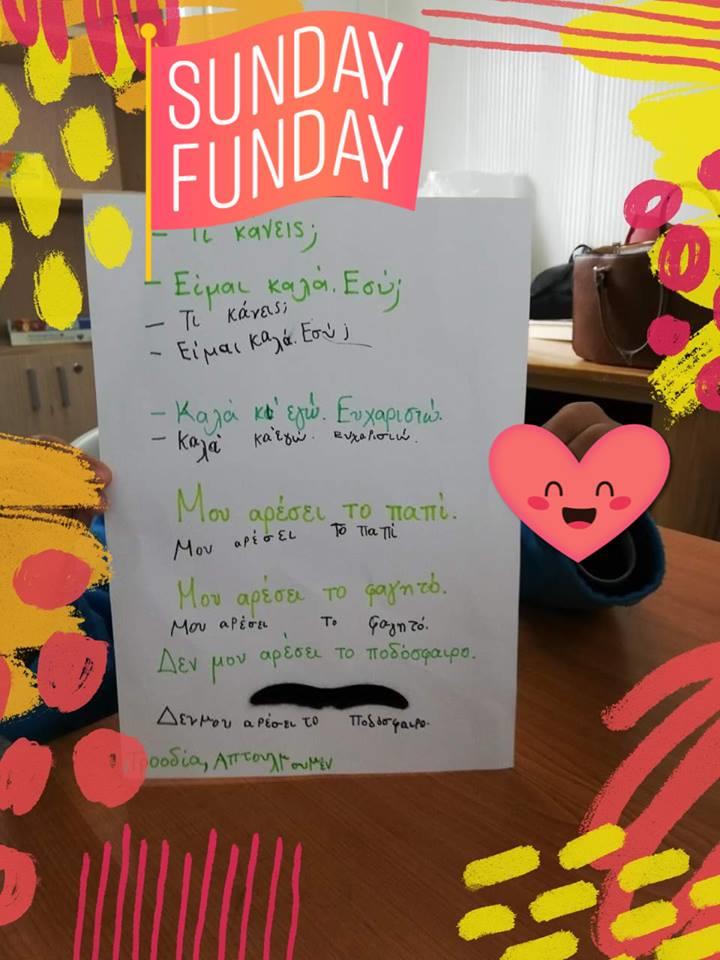 SUNDAY
FUNDAY
- Τι κάνεις;
- Είμαι καλά. Εσύ;
- Τι κάνεις;
- Είμαι καλά. Εσύ;
- Καλά κι' εγώ. Ευχαριστώ.
- Καλά κα'εγώ. ευχαριστώ.
Μου αρέσει το παπί.
Μου αρέσει το παπί
Μου αρέσει το φαγητό.
Μου αρέσει το φαγητό.
Δεν μου αρέσει το ποδόσφαιρο.
Δεν μου αρέσει το ποδόσφαιρο.